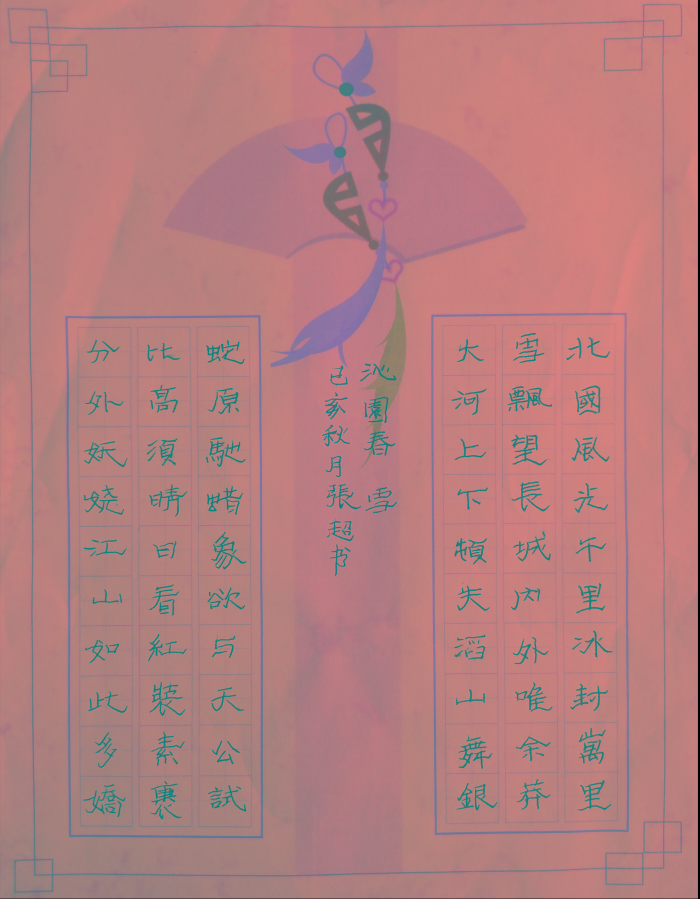 北國風光千里冰封萬里
雪飄望長城內外唯余莽
大河上下頓失滔山舞銀
沁園春 雪
己亥秋月張超书
蛇原馳蜡象欲与天公試
比高須晴日看紅裝素裹
分外妖娆江山如此多嬌